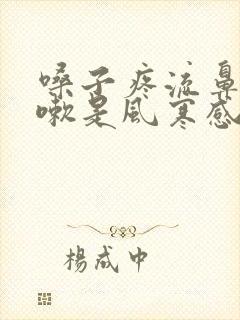 嗓子疼流鼻
嗽是风寒感
杨成中